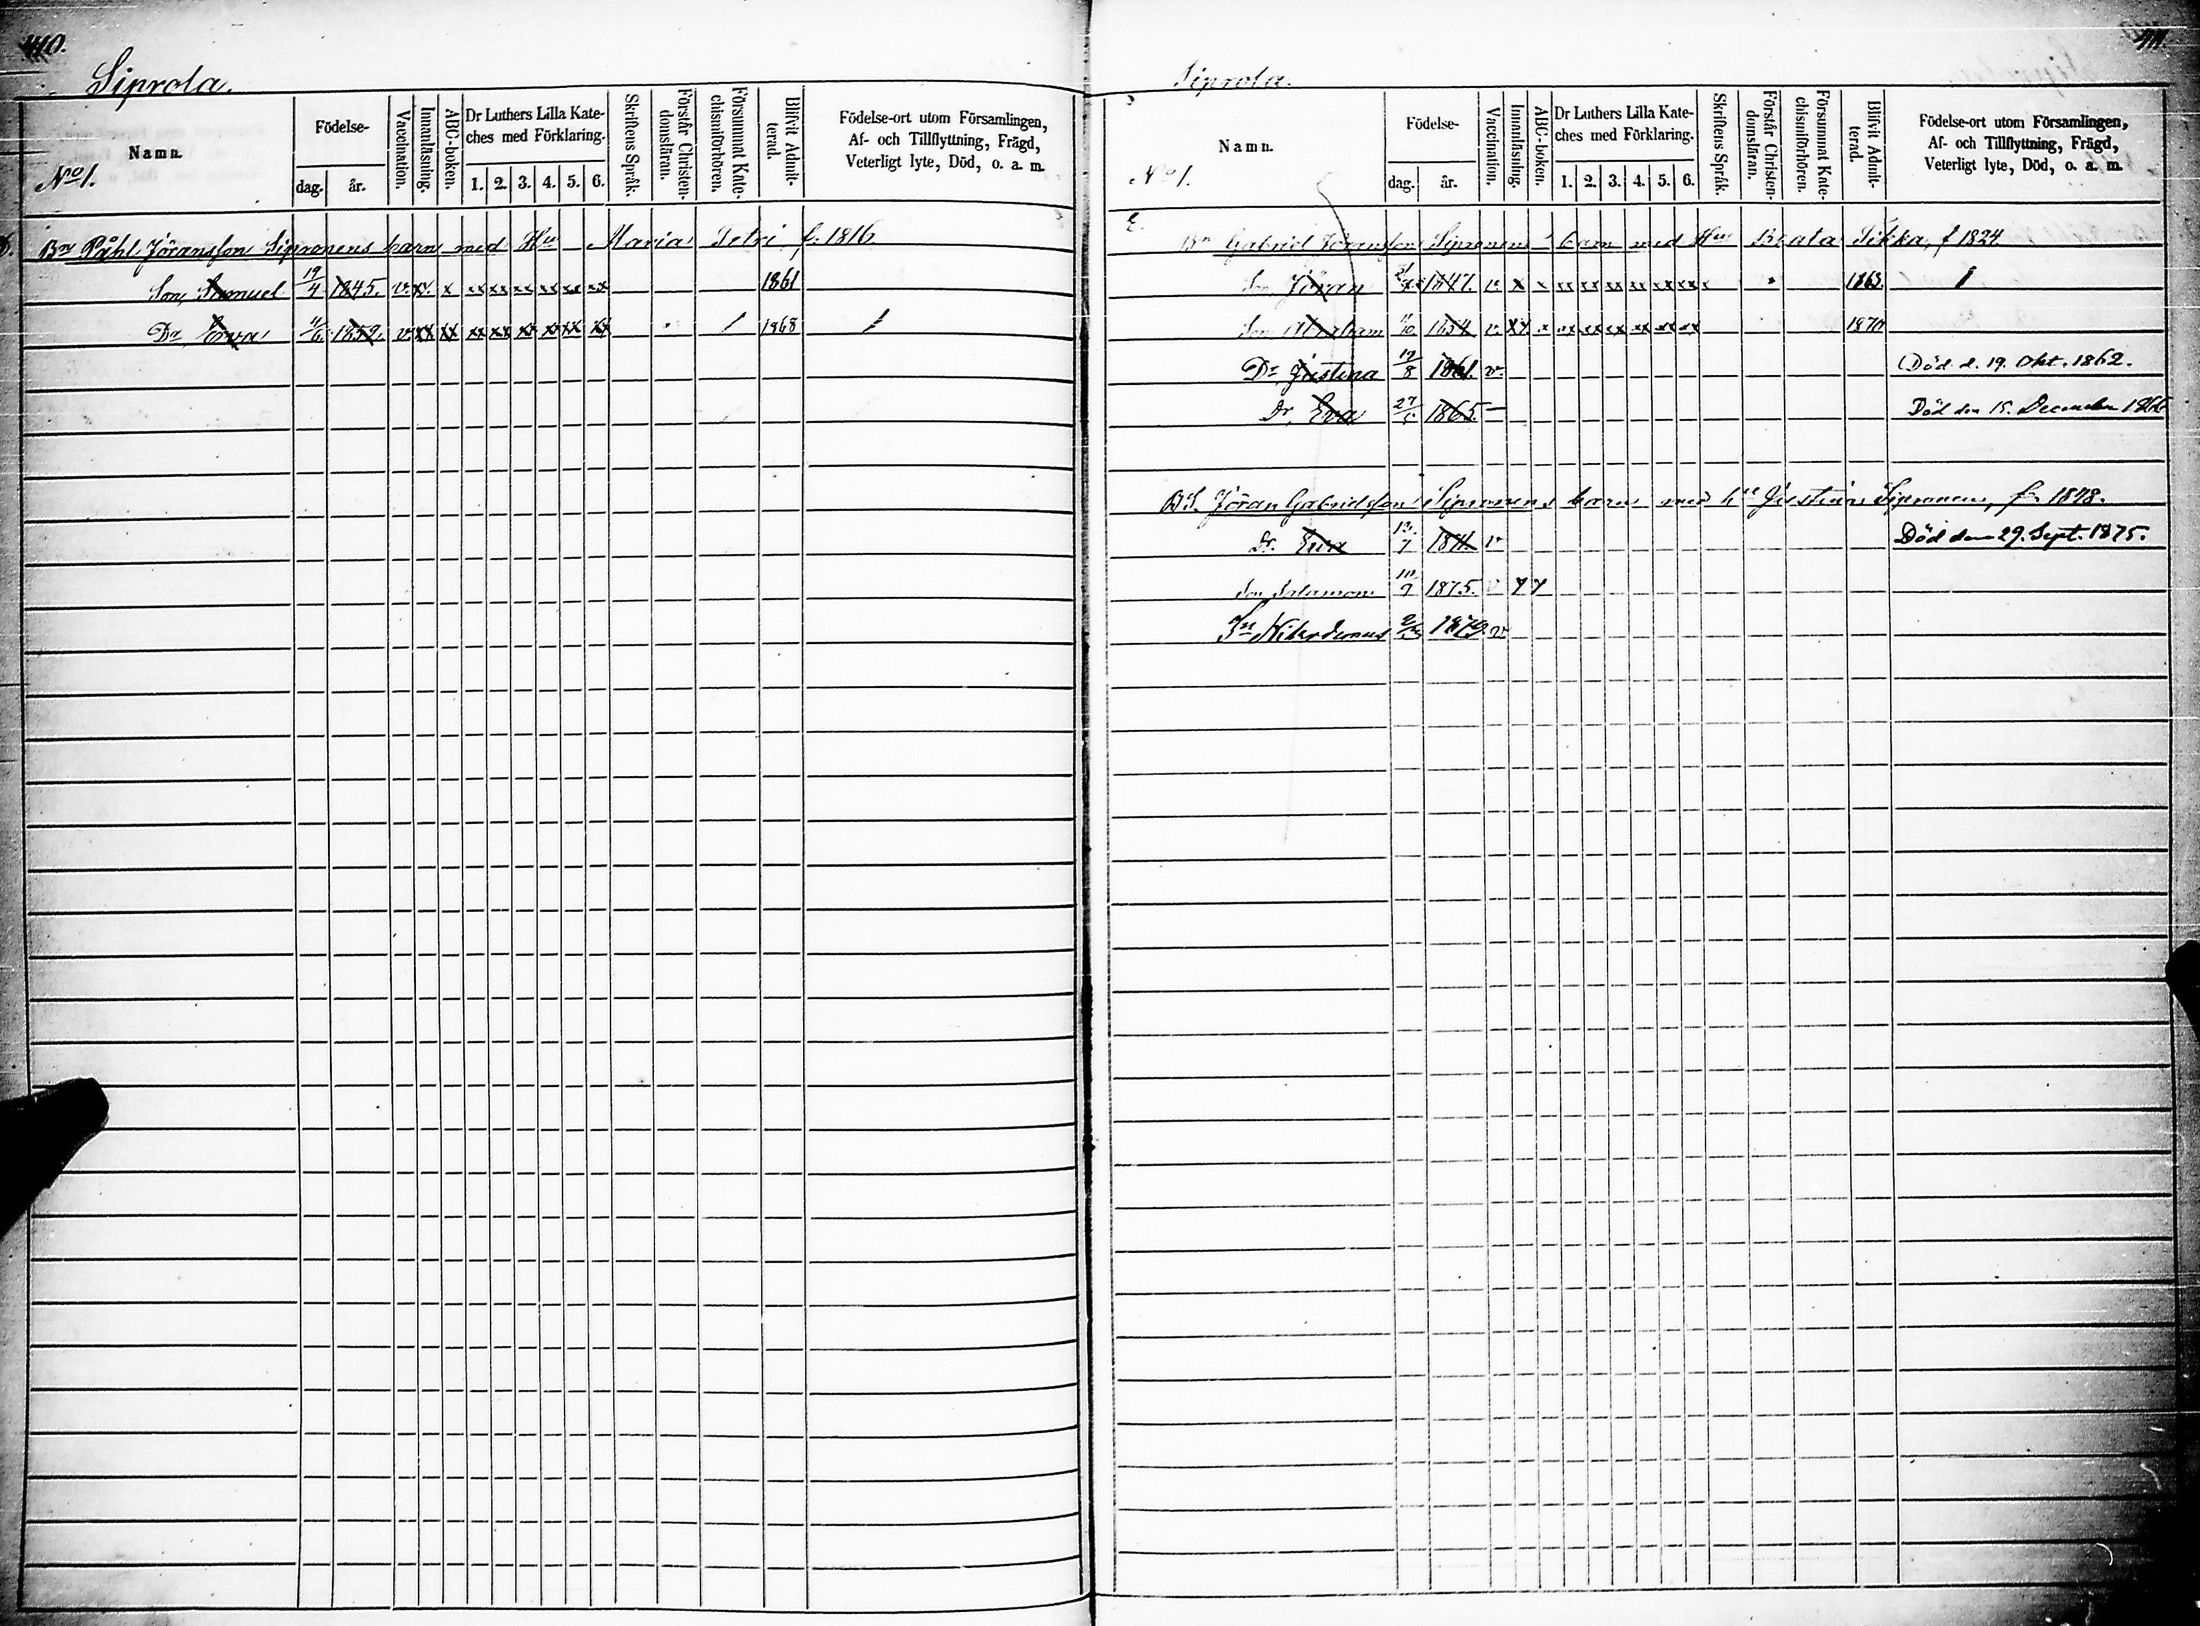 410.
Siprola.
Namn.
No 1.
Födelse-
dag.
år.
Vaccination.
Innanläsning.
ABC-boken.
Dr Luthers Lilla Kate-
ches med Förklaring.
1. 2. 3. 4. 5. 6.
Skriftens Språk.
Förstår Christen-
domsläran.
Försummat Kate-
chismiförhören.
Blifvit Admit-
terad.
Födelse-ort utom Församlingen,
Af- och Tillflyttning, Frägd,
Veterligt lyte, Död, o. a. m.
D. Bn Påhl Jöransson Sipronens barn med Hu Maria Petri, f. 1816
Son, Samuel 19/4 1845. v. xx. x xx xx xx xx xx xx 1861
Dr Ewa 11/6 1852. v. xx xx xx xx xx xx xx xx / 1868 1
411.
Siprola.
Namn.
No 1.
Födelse-
dag.
år.
Vaccination.
Innanläsning.
ABC-boken.
Dr Luthers Lilla Kate-
ches med Förklaring.
1. 2. 3. 4. 5. 6.
Skriftens Språk.
Förstår Christen-
domsläran.
Försummat Kate-
chismiförhören.
Blifvit Admit-
terad.
Födelse-ort utom Församlingen,
Af- och Tillflyttning, Frägd,
Veterligt lyte, Död, o. a. m.
E. Bn Gabriel Jöransson Sipronens barn med Hu Beata Sikka, f 1824.
Son Jöran 1847. v. x x xx xx xx xx xx xx 1863. 1
Son Abraham 1854 v. xx x xx xx xx xx xx xx 1870
Dr Justina 19/8 1861. v. Död d. 19. Okt. 1862.
Dr. Eva 27/5 1865. — Död den 15. December 1866
BS. Jöran Gabrielsson Sipronens barn med hu Justina Sipronen, f. 1848.
Dr. Ewa 13/7 1871. v Död den 29. Sept. 1875.
Son Salamon 10/9 1875. v
Sn Nikodemus 1879. v